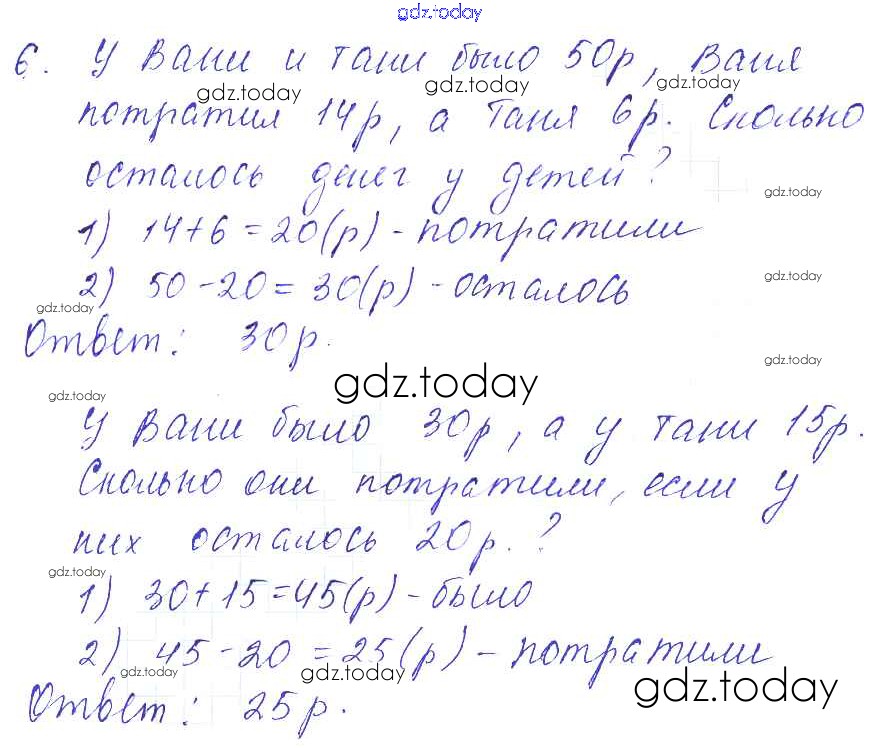 gdz.today
6. У Вани и Тани было 50р, Ваня
gdz.today gdz.today gdz.today
потратил 14р, а Таня 6р. Сколько
осталось денег у детей?
gdz.today
1) 14+6=20(р) - потратили
gdz.today
2) 50-20=30(р) - осталось
gdz.today
Ответ: 30р.
gdz.today
gdz.today
gdz.today
У Вани было 30р, а у Тани 15р.
Сколько они потратили, если у
них осталось 20р.?
gdz.today
1) 30+15=45(р) - было
2) 45-20=25(р) - потратили
gdz.today gdz.today gdz.today
Ответ: 25р.